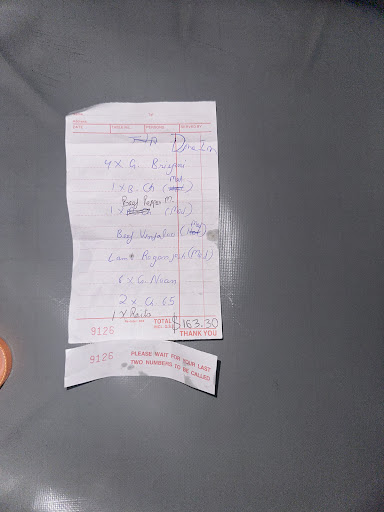 DATE TABLE NO. PERSONS SERVED BY
4 x G. Briyani
1 x B. Ch (Med)
Beef Pepper M.
1 x (Med)
Beef Vindaloo (Med)
Lamb Roganjosh (Med)
6 x G. Naan
2 x G. 65
1 x Raita
9126 TOTAL $163.30
INCL. G.S.T. THANK YOU
9126 PLEASE WAIT FOR YOUR LAST
TWO NUMBERS TO BE CALLED